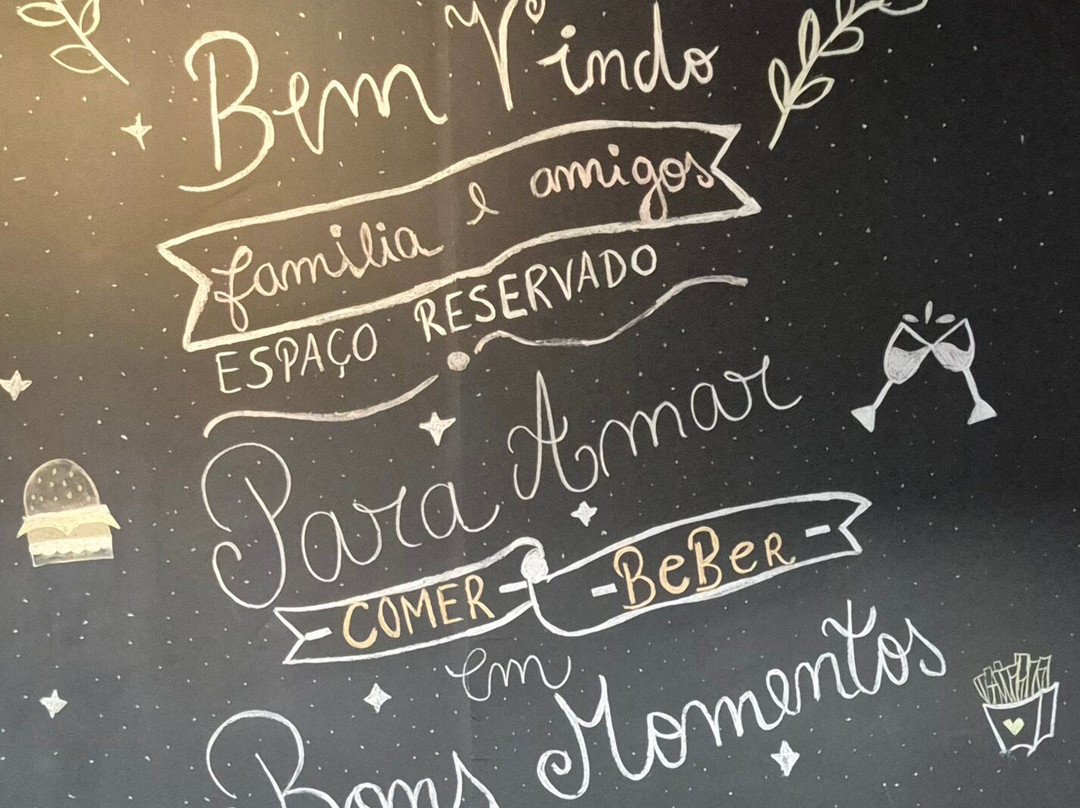 Bem Vindo
família e amigos
ESPAÇO RESERVADO
Para Amar
COMER - BeBeR -
em
Bons Momentos